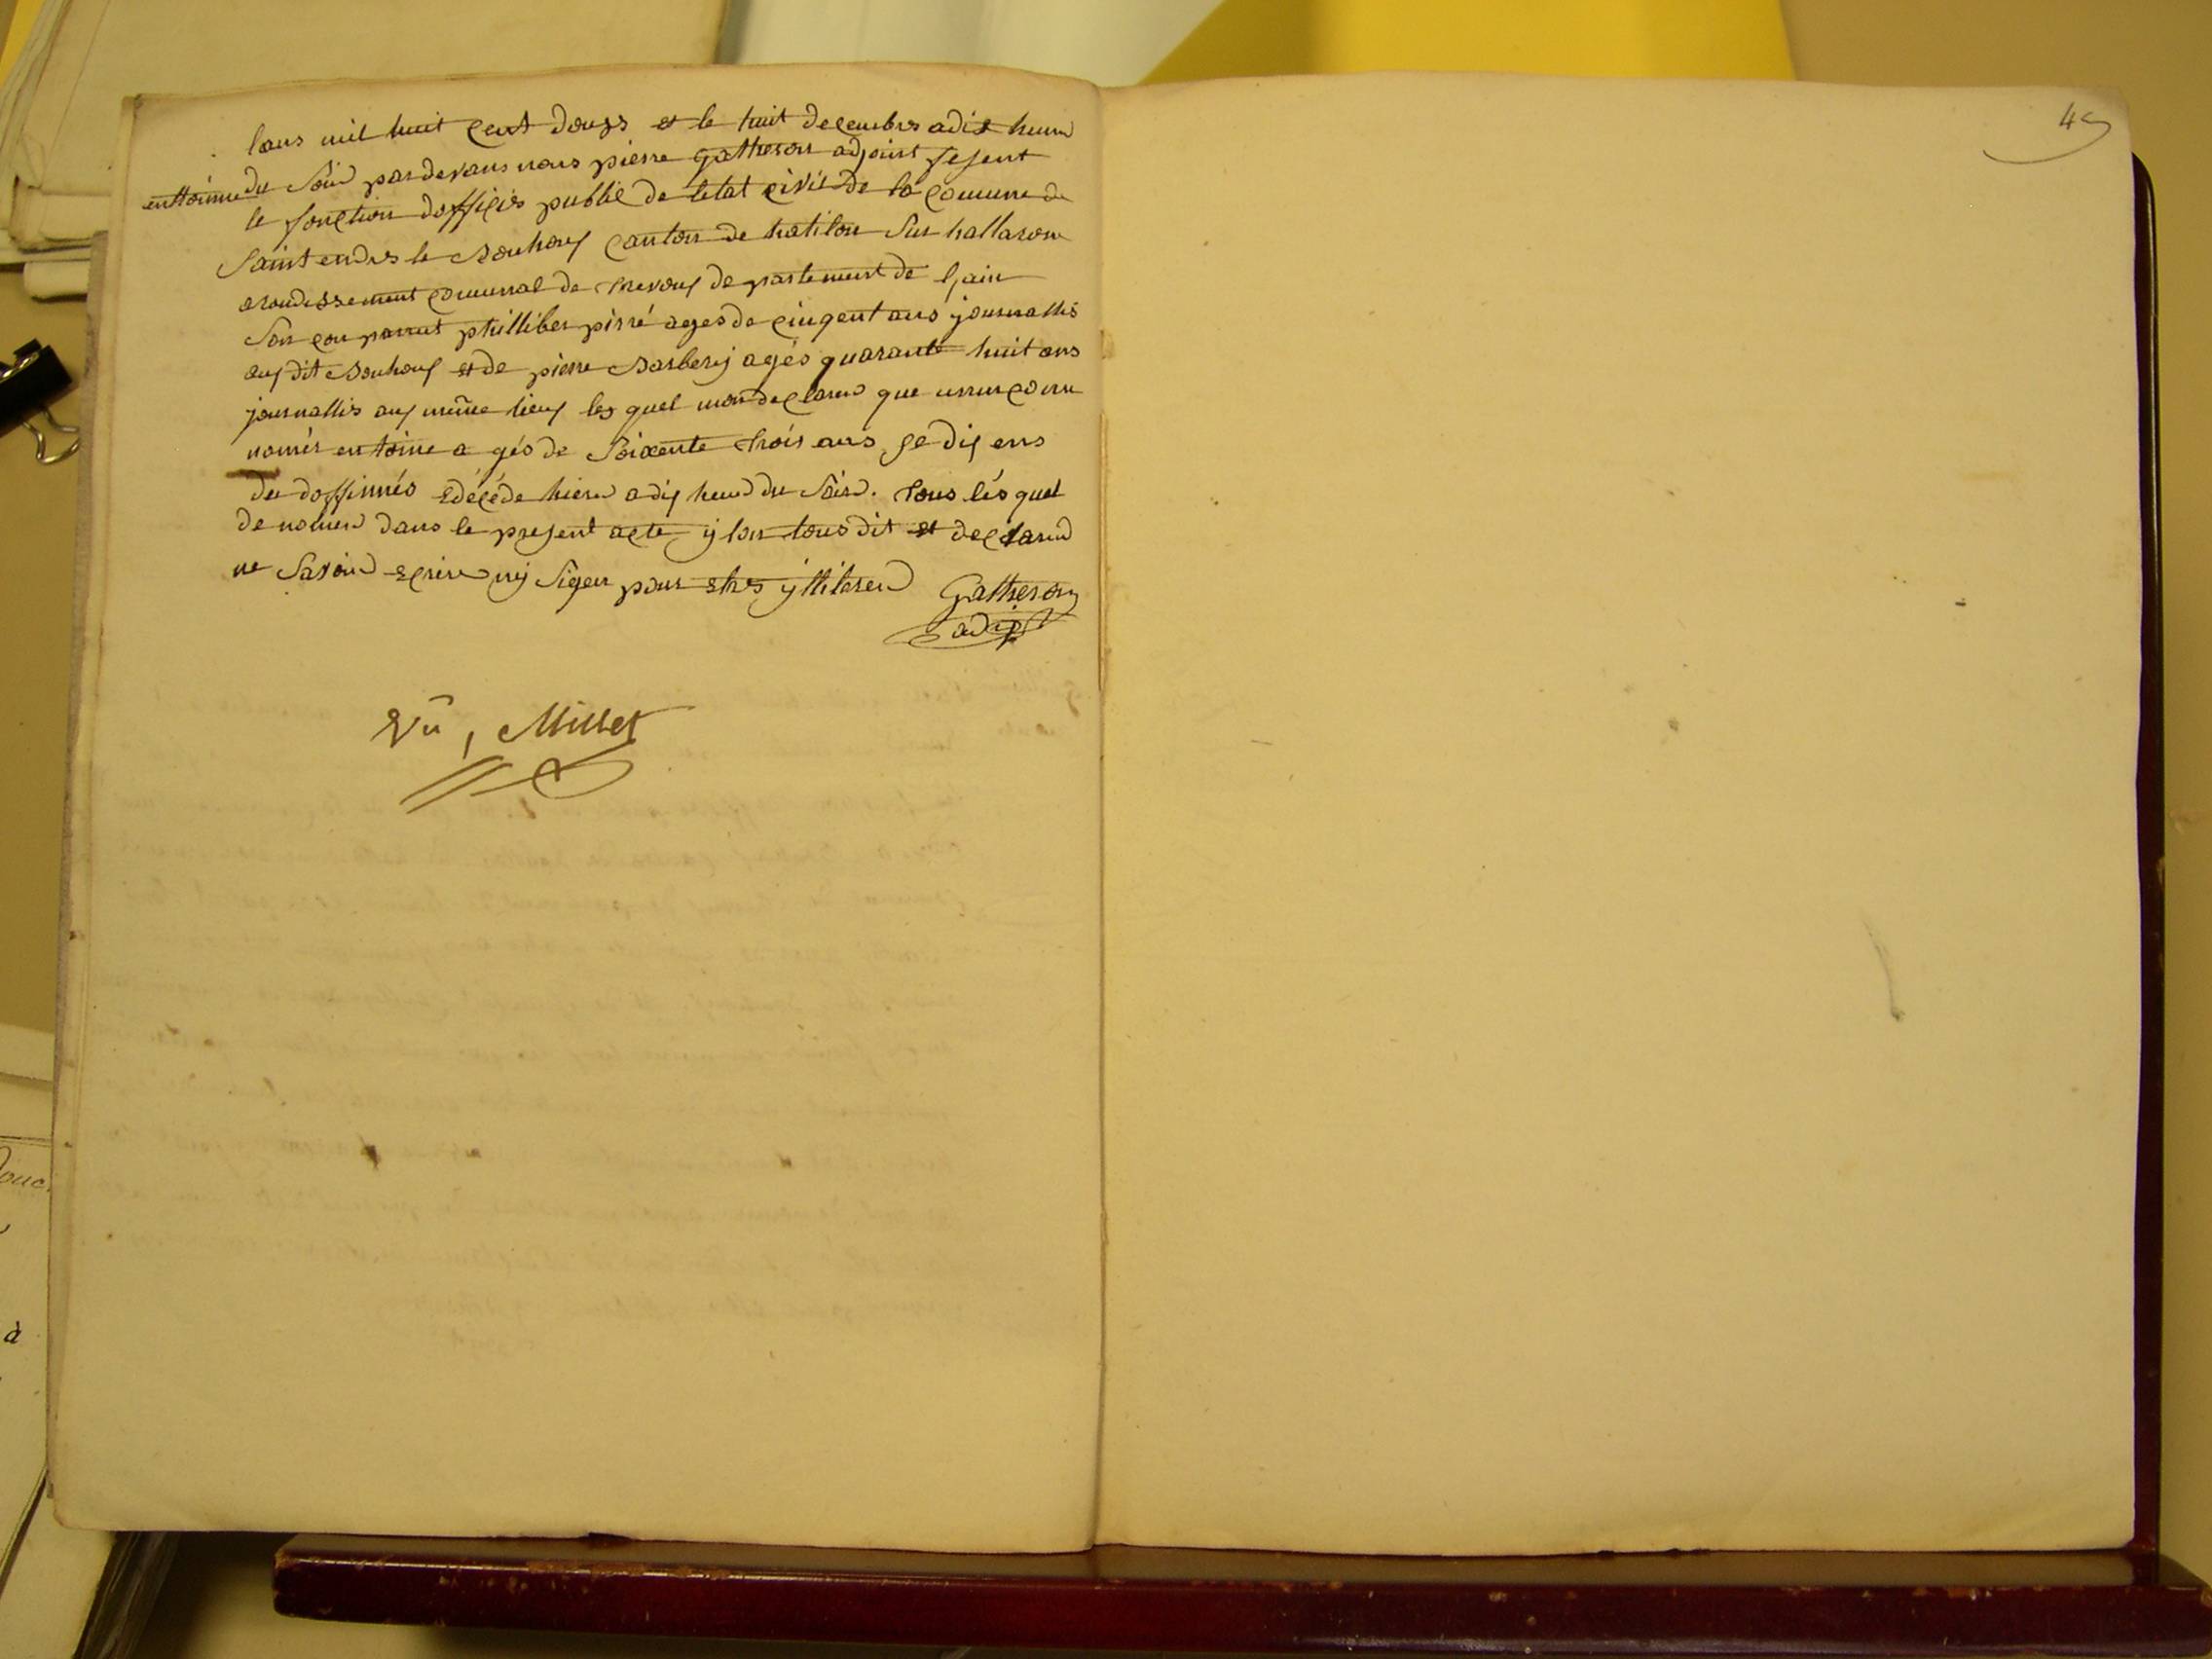 lans mil huit cent douzs et le huit decembrs adix heure
enttoinne
du Soir pardevans nous pierre gatheron adjoint fesent
le fonction dofficiés public de letat civil de la comune de
Saint endrés le bouhouf canton de hatilon Sur hallaronne
arondissement comunal de trevouf departement de lain
Son conparut phillibes pirré agés de cinqent ans journallié
auf dit bouhouf et de pierre barberij agés quarante huit ans
journallié auf mume lieuf les quel mon declarer que
només entoine a gés de Soixente trois ans, ens
du doffinnés decéde hiere a dix heur du Soir. tous lés quel
de nomer dans le present acte ij lon tous dit et declarer
ne Savoir ecrire nij Siger pour
Gatheron
adjt
Vu, Millet
45